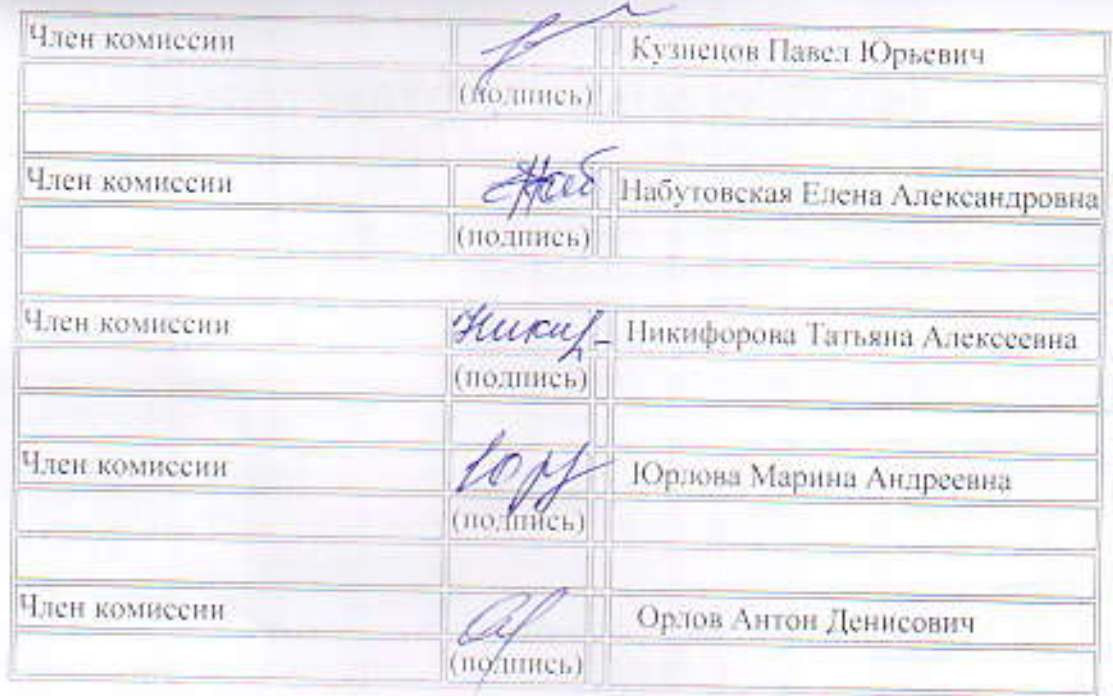 Член комиссии Кузнецов Павел Юрьевич
(подпись)
Член комиссии Набутовская Елена Александровна
(подпись)
Член комиссии Никифорова Татьяна Алексеевна
(подпись)
Член комиссии Юрлова Марина Андреевна
(подпись)
Член комиссии Орлов Антон Денисович
(подпись)